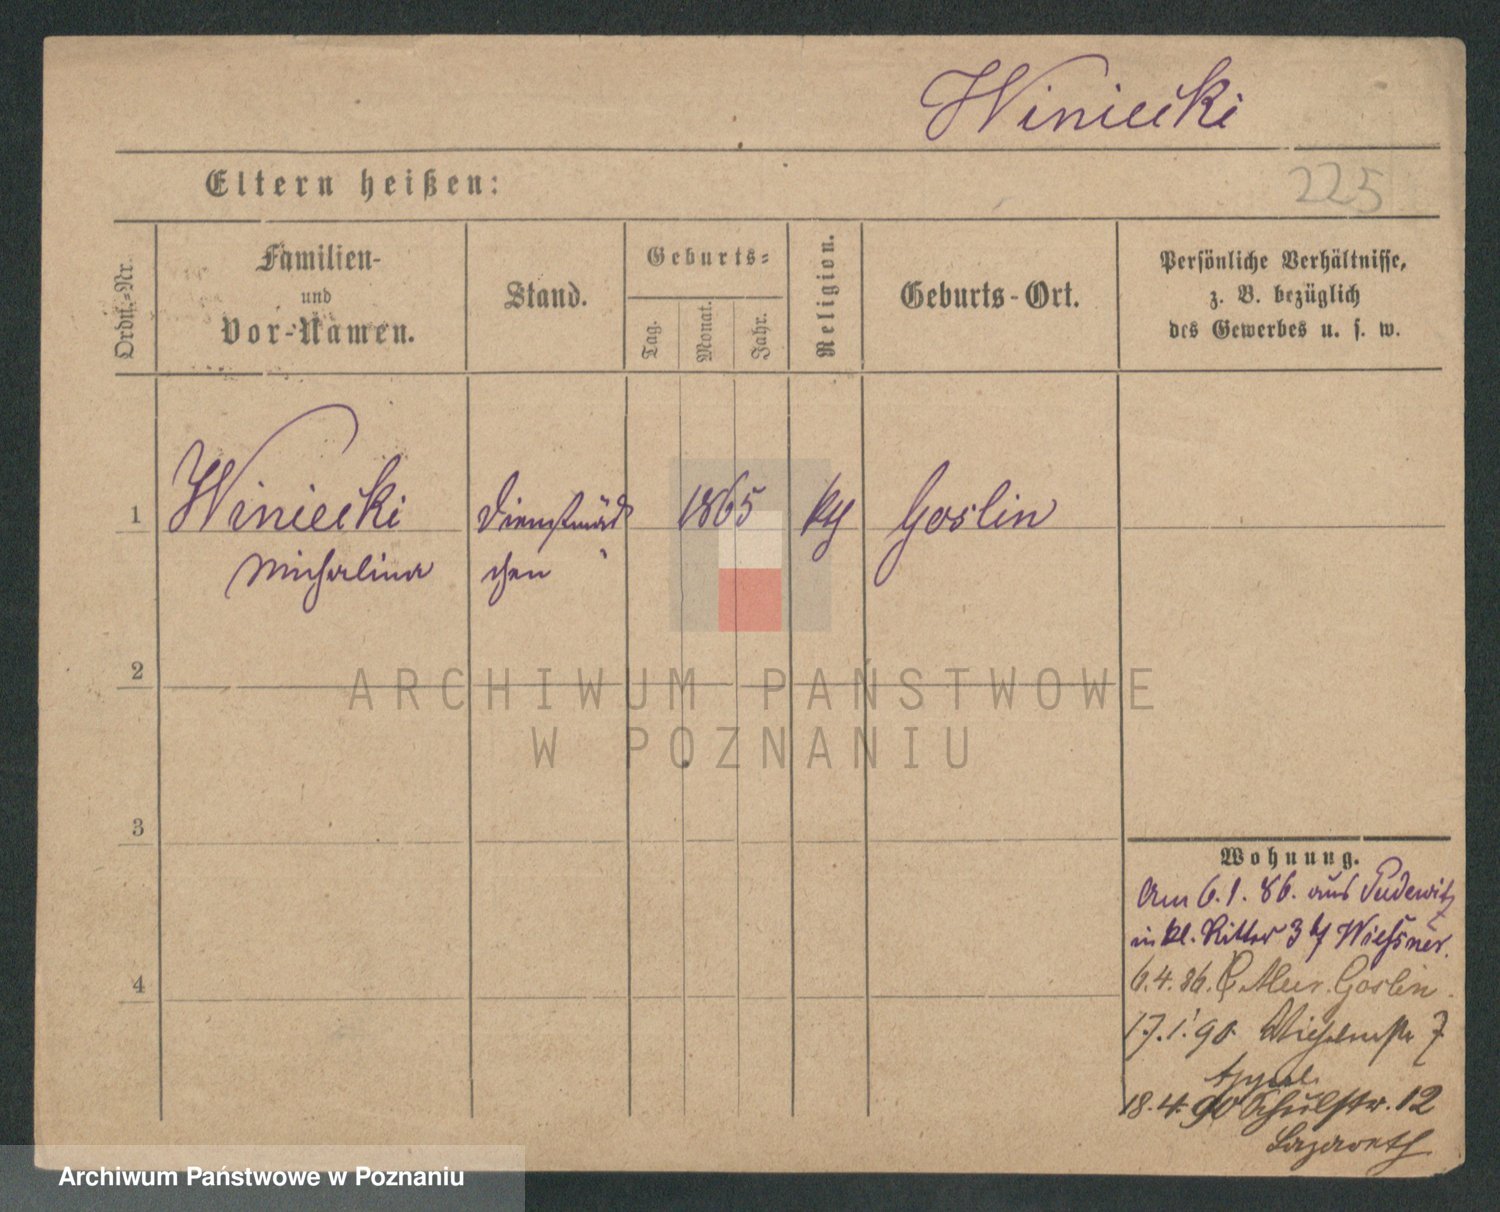 Winiecki
Eltern heißen:
225
Ordn.-Nr.
Familien-
und
Vor-Namen.
Stand.
Geburts-
Tag.
Monat.
Jahr.
Religion.
Geburts-Ort.
Persönliche Verhältnisse,
z. B. bezüglich
des Gewerbes u. s. w.
1
Winiecki
Michalina
Dienstmäd
chen
1865
kth
Goslin
2
3
4
Wohnung.
Am 6.1.86. aus Pudewitz
in kl. Ritter 3 Wiesner.
6.4.86. Mur. Goslin.
17.1.90. 7
Appel
18.4.90 Schulstr. 12
Lazareth
ARCHIWUM PAŃSTWOWE
W POZNANIU
Archiwum Państwowe w Poznaniu